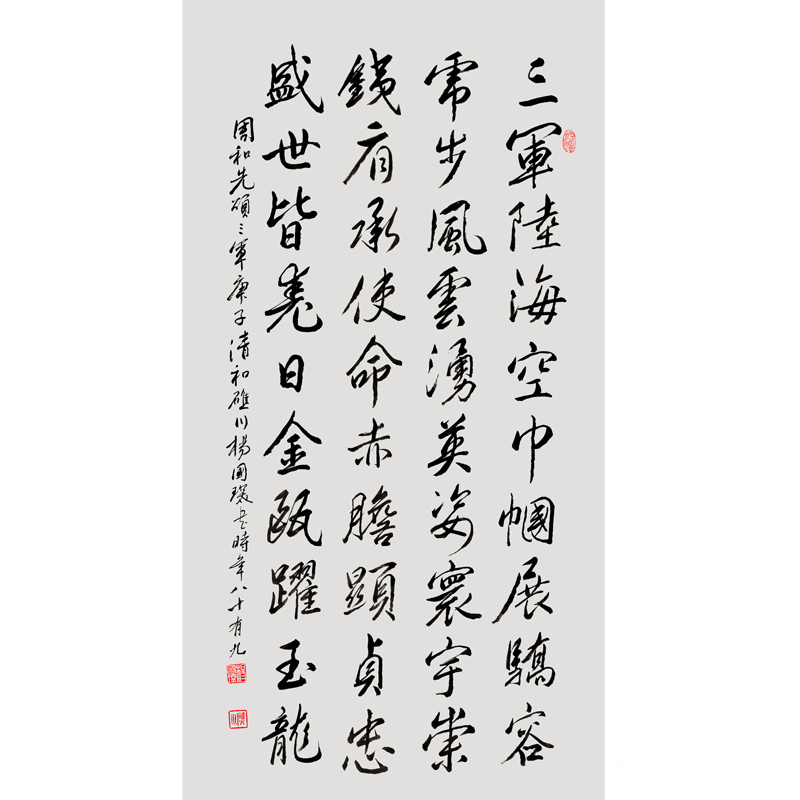 三軍陸海空巾幗展驕容
虎步風雲湧英姿寰宇崇
鐵肩承使命赤膽顯貞忠
盛世皆堯日金甌躍玉龍
周和先頌三軍庚子清和礁川楊國書時年八十有九